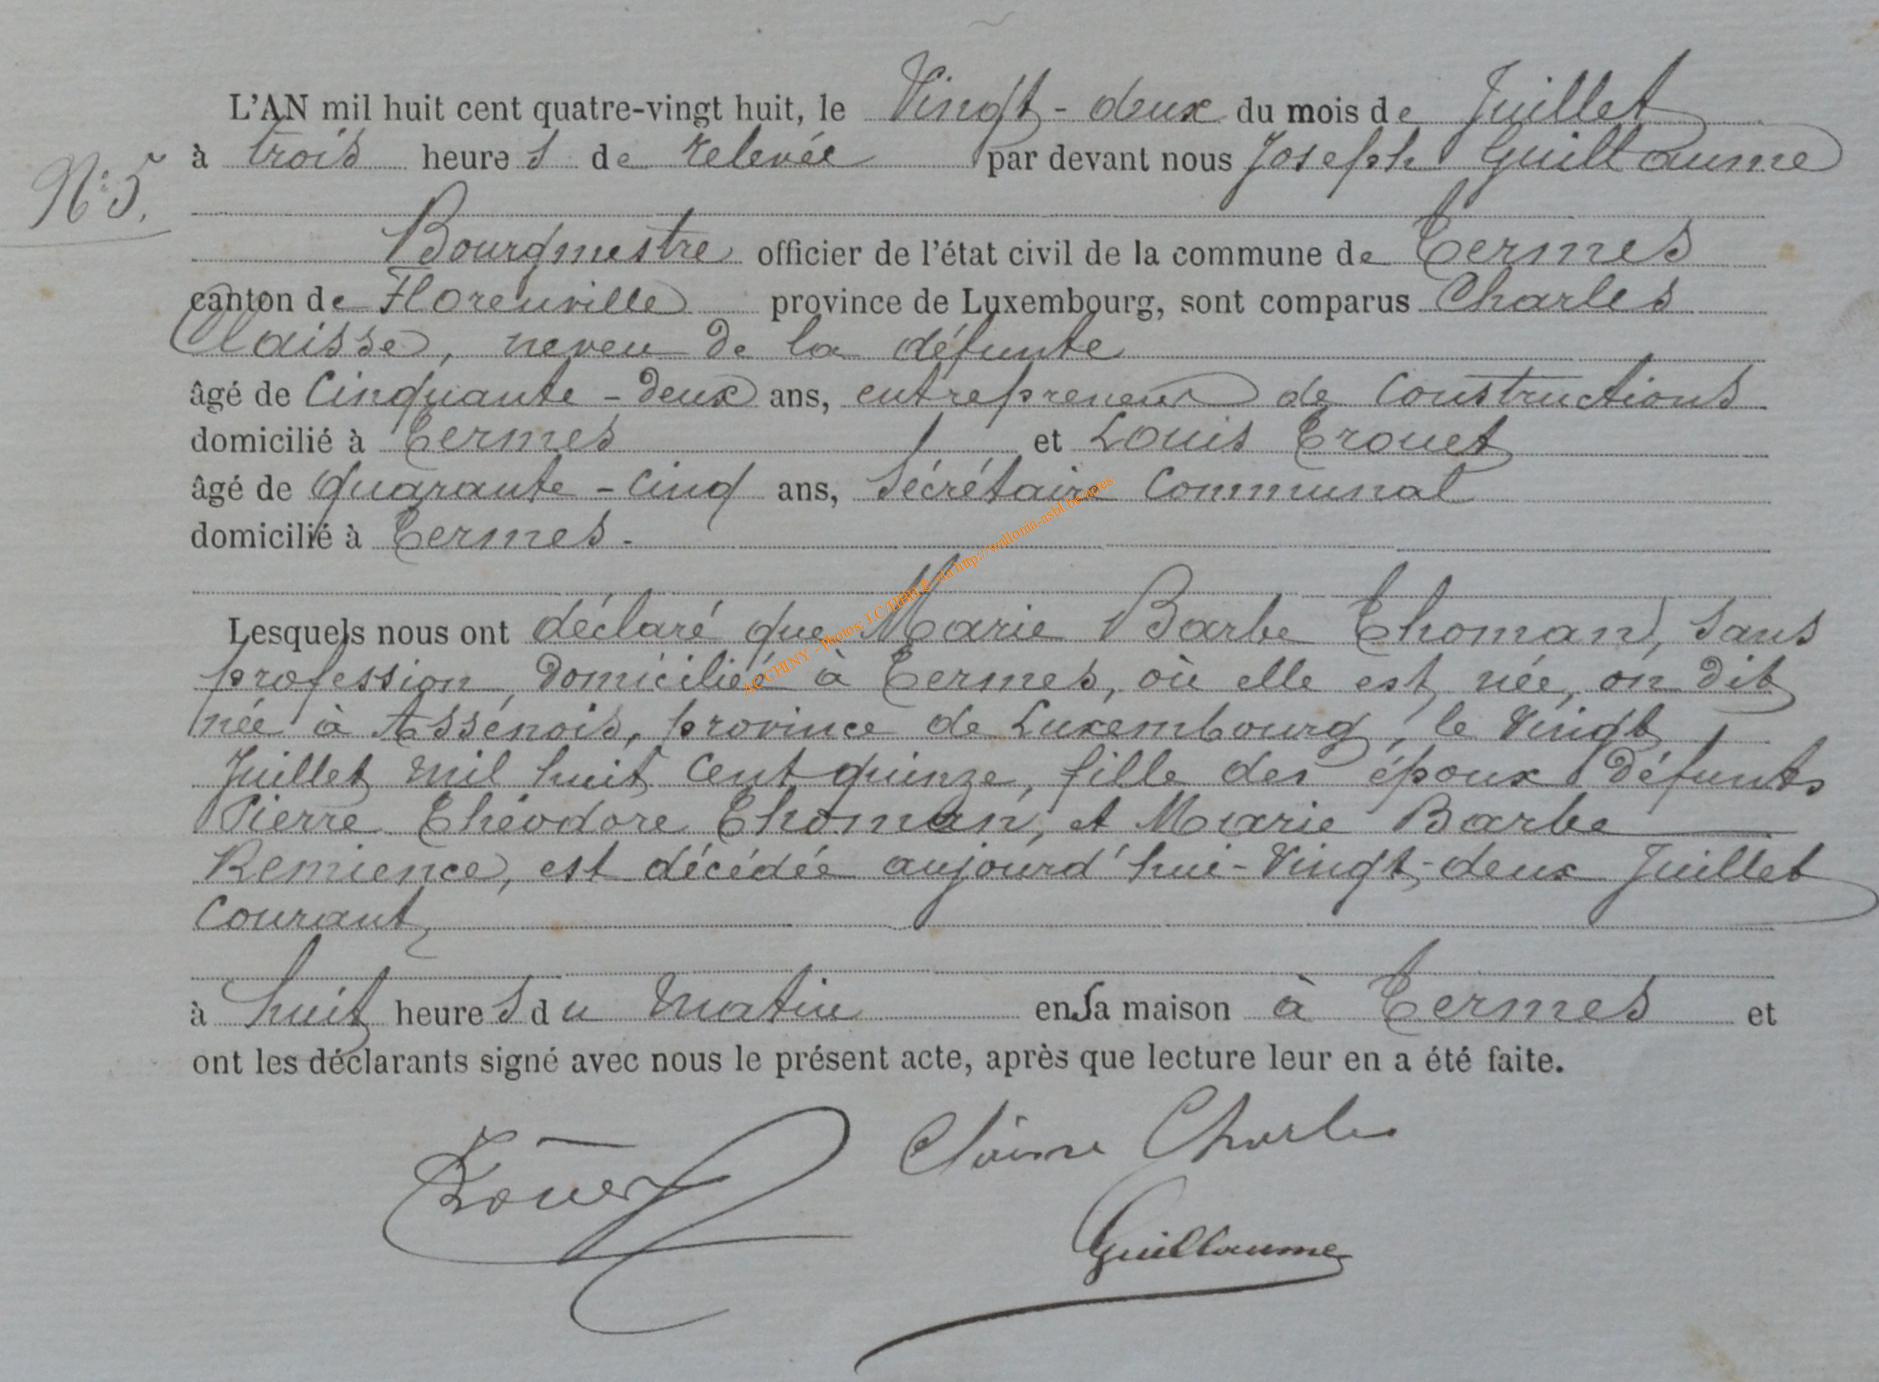 L'AN mil huit cent quatre-vingt huit, le Vingt-deux du mois de Juillet
à trois heures de relevée par devant nous Joseph Guillaume
N° 5.
Bourgmestre officier de l'état civil de la commune de Termes
canton de Florenville province de Luxembourg, sont comparus Charles
Claisse, neveu de la défunte
âgé de Cinquante-deux ans, entrepreneur de Constructions
domicilié à Termes et Louis Trouet
âgé de Quarante-cinq ans, Sécrétaire Communal
domicilié à Termes.
Lesquels nous ont déclaré que Marie Barbe Thoman, sans
profession, domiciliée à Termes, où elle est née, on dit
née à Assénois, province de Luxembourg, le Vingt
Juillet mil huit cent quinze, fille des époux défunts
Pierre Théodore Thoman, et Marie Barbe
Remience, est décédée aujourd'hui-Vingt-deux Juillet
Courant
à huit heures du matin en sa maison à Termes et
ont les déclarants signé avec nous le présent acte, après que lecture leur en a été faite.
Trouet Claisse Charles
Guillaume